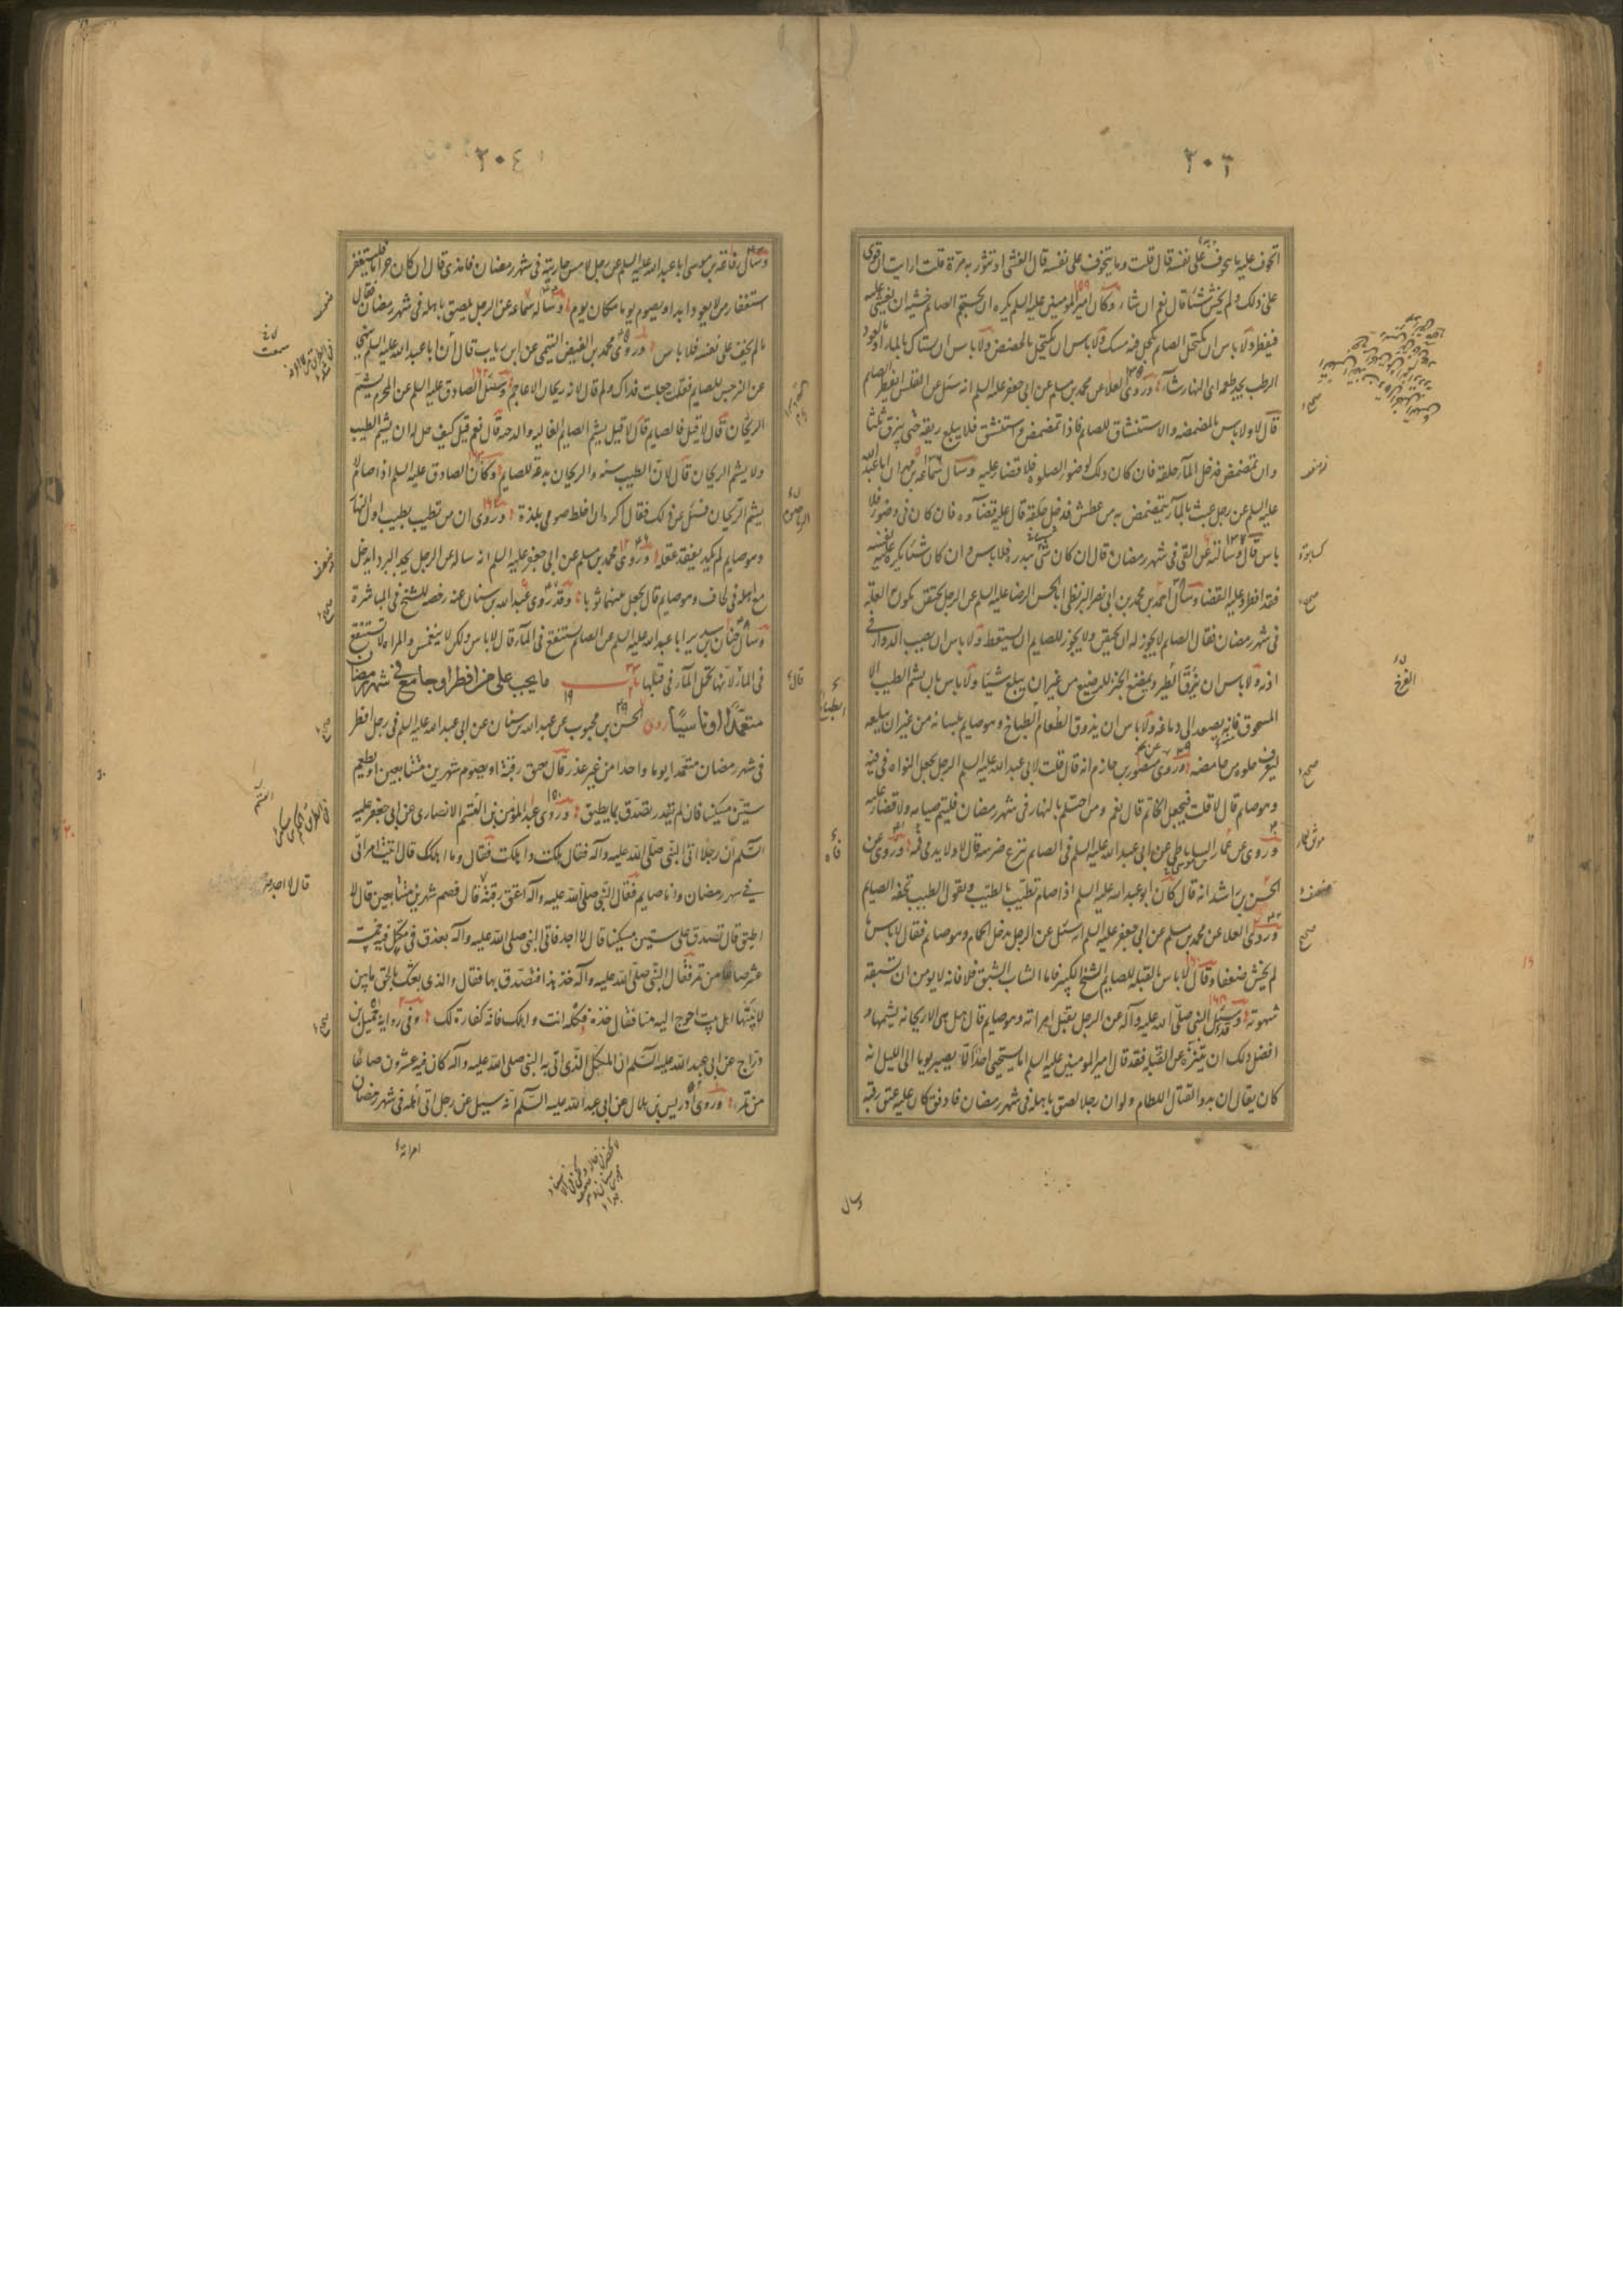 ٣٠٣
اتخوف عليه ما يتخوف على نفسه قال قلت وما يتخوف على نفسه قال الغشى او تثور به مرة قلت ارايت ان قوى
على ذلك ولم يخش شيئا قال نعم ان شاء وكان امير المومنين عليه السلم يكره ان يحتجم الصايم خشية ان يغشى عليه
فيفطر ولا باس ان يكتحل الصايم بكحل فيه مسك ولا باس ان يكتحل بالحضض ولا باس ان يستاك بالماء او بالعود
الرطب يجد طعمه اى النهار شاء وروى العلا عن محمد بن مسلم عن ابى جعفر عليه السلم انه سئل عن القلس ايفطر الصايم
قال لا ولا باس بالمضمضه والاستنشاق للصايم فاذا تمضمض واستنشق فلا يبلع ريقه حتى يبزق ثلثا
وان تمضمض فدخل الماء حلقه فان كان ذلك لوضوء الصلوة فلا قضاء عليه وسال سماعه بن مهران ابا عبد الله
عليه السلم عن رجل عبث بالماء يتمضمض به من عطش فدخل حلقه قال عليه قضاوه فان كان فى وضوء فلا
باس قال وسالته عن القى فى شهر رمضان قال ان كان شى يبدره فلا باس وان كان شيئا يكره عليه نفسه
فقد افطر وعليه القضاء وسال احمد بن محمد بن ابى نصر البزنطى ابا الحسن الرضا عليه السلم عن الرجل يحتقن يكون به العله
فى شهر رمضان فقال الصايم لا يجوز له ان يحتقن ولا يجوز للصايم ان يستعط ولا باس ان يصب الدواء فى
اذنه ولا باس ان يزق الطير ويمضغ الخبز للرضيع من غير ان يبلع شيئا ولا باس بان يشم الطيب الا
المسحوق فانه يصعد الى دماغه ولا باس ان يذوق الطعام الطباخ وهو صايم بلسانه من غير ان يبلعه
ليعرف حلوه من حامضه وروى منصور بن حازم انه قال قلت لابى عبد الله عليه السلم الرجل يجعل النواه فى فيه
وهو صايم قال لا قلت فيجعل الخاتم قال نعم ومن احتلم بالنهار فى شهر رمضان فليتم صيامه ولا قضاء عليه
وروى عن عمار الساباطى عن ابى عبد الله عليه السلم فى الصايم ينزع ضرسه قال لا ولا يدمى فمه وروى عن
الحسن بن راشد انه قال كان ابو عبد الله عليه السلم اذا صام تطيب بالطيب ويقول الطيب تحفه الصايم
وروى العلا عن محمد بن مسلم عن ابى جعفر عليه السلم انه سئل عن الرجل يدخل الحمام وهو صايم فقال لا باس ما
لم يخش ضعفا وقال لا باس بالقبله للصايم الشيخ الكبير فاما الشاب الشبق فلا فانه لا يومن ان تسبقه
شهوته وسئل النبى صلى الله عليه وآله عن الرجل يقبل امراته وهو صايم قال هل هى الا ريحانه يشمها و
افضل ذلك ان يتنزه عن القبله فقد قال امير المومنين عليه السلم اما يستحيى احدكم الا يصبر يوما الى الليل انه
كان يقال ان بدو القتال اللطام ولو ان رجلا لصق باهله فى شهر رمضان فادفق كان عليه عتق رقبة
وسال
صحيح
صحيح
ضعيف
صحيح
٣٠٤
وسال رفاعه بن موسى ابا عبد الله عليه السلم عن رجل لامس جاريته فى شهر رمضان فامذى قال ان كان حراما فليستغفر
استغفار من لا يعود ابدا ويصوم يوما مكان يوم وساله سماعه عن الرجل يلصق باهله فى شهر رمضان فقال
ما لم يخف على نفسه فلا باس وروى محمد بن الفيض التيمى عن ابن رياب قال ان ابا عبد الله عليه السلم نهى
عن النرجس للصايم فقلت جعلت فداك ولم قال لانه ريحان الاعاجم وسئل الصادق عليه السلم عن المحرم يشم
الريحان قال لا قيل فالصايم قال لا قيل يشم الصايم الغاليه والدخنه قال نعم قيل كيف حل له ان يشم الطيب
ولا يشم الريحان قال لان الطيب سنه والريحان بدعة للصايم وكان الصادق عليه السلم اذا صام لا
يشم الريحان فسئل عن ذلك فقال اكره ان اخلط صومى بلذة وروى ان من تطيب بطيب اول النهار
وهو صايم لم يكد يفقد عقله وروى محمد بن مسلم عن ابى جعفر عليه السلم انه ساله عن الرجل يجد البرد ايدخل
مع اهله فى لحاف وهو صايم قال يجعل بينهما ثوبا وقد روى عبد الله بن سنان عنه رخصه للشيخ فى المباشرة
وسال حنان بن سدير ابا عبد الله عليه السلم عن الصايم يستنقع فى الماء قال لا باس ولكن لا ينغمس والمراه لا تستنقع
فى الماء لانها تحمل الماء فى قبلها باب ما يجب على من افطر او جامع فى شهر رمضان
متعمدا او ناسيا روى الحسن بن محبوب عن عبد الله بن سنان عن ابى عبد الله عليه السلم فى رجل افطر
فى شهر رمضان متعمدا يوما واحدا من غير عذر قال يعتق رقبة او يصوم شهرين متتابعين او يطعم
ستين مسكينا فان لم يقدر تصدق بما يطيق وروى عبد المؤمن بن القسم الانصارى عن ابى جعفر عليه
السلم ان رجلا اتى النبى صلى الله عليه وآله فقال هلكت واهلكت فقال وما اهلكك قال اتيت امراتى
فى شهر رمضان وانا صايم فقال النبى صلى الله عليه وآله اعتق رقبة قال فصم شهرين متتابعين قال لا
اطيق قال تصدق على ستين مسكينا قال لا اجد فاتى النبى صلى الله عليه وآله بعذق فى مكتل فيه خمسة
عشر صاعا من تمر فقال النبى صلى الله عليه وآله خذ هذا فتصدق بها فقال والذى بعثك بالحق ما بين
لابتيها اهل بيت احوج اليه منا فقال خذه فكله انت واهلك فانه كفارة لك وفى رواية جميل بن
دراج عن ابى عبد الله عليه السلم ان المكتل الذى اتى به النبى صلى الله عليه وآله كان فيه عشرون صاعا
من تمر وروى ادريس بن هلال عن ابى عبد الله عليه السلم انه سئل عن رجل اتى اهله فى شهر رمضان
امراته
قال لا اجد